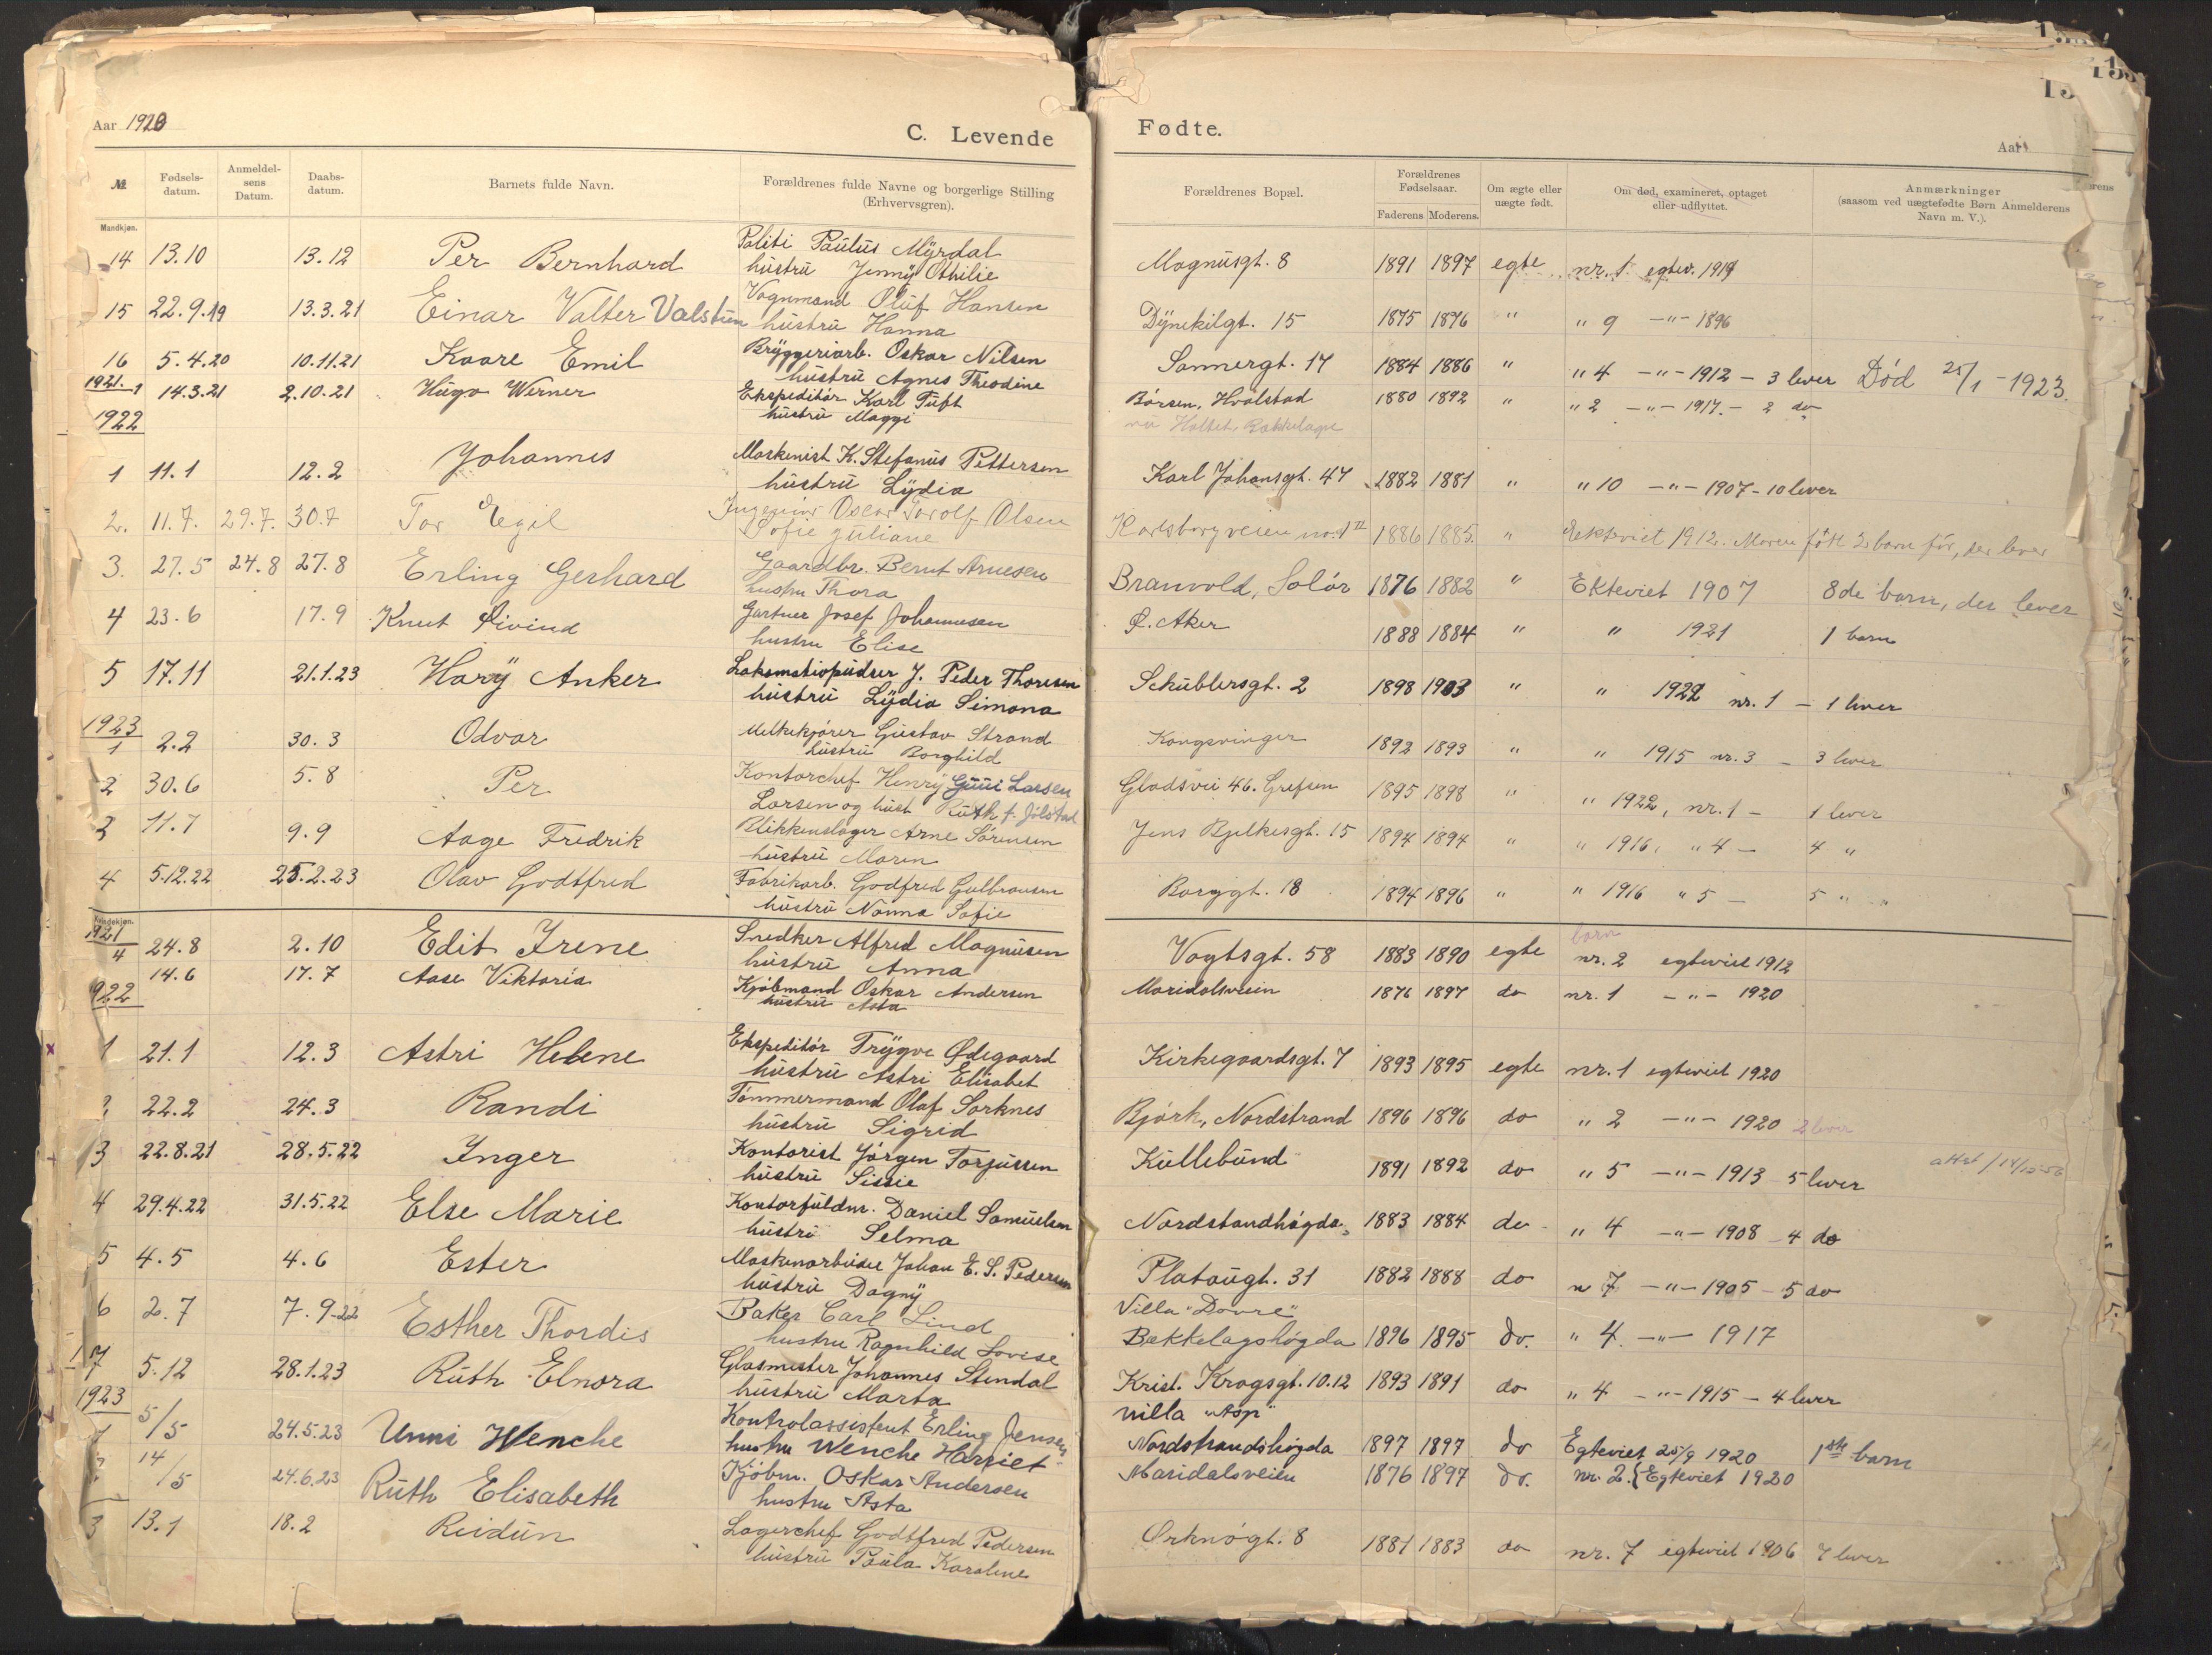 Aar 1920
C. Levende
Fødte.
Aar
№ Fødsels-datum. Anmeldel-sens Datum. Daabs-datum. Barnets fulde Navn. Forældrenes fulde Navne og borgerlige Stilling (Erhvervsgren). Forældrenes Bopæl. Forældrenes Fødselsaar. Faderens Moderens. Om ægte eller uægte født. Om død, examineret, optaget eller udflyttet. Anmærkninger (saasom ved uægtefødte Børn Anmelderens Navn m. V.).
Mandkjøn.
14 13.10 13.12 Per Bernhard Politi Paulus Myrdal Magnusgt. 8 1891 1897 egte nr. 1. egtev. 1919
hustru Jenny Othilie
15 22.9.19 13.3.21 Einar Valter Valstun Vognmand Oluf Hansen Dynekilgt. 15 1875 1876 " " 9 -"- 1896
hustru Hanna
16 5.4.20 10.11.21 Kaare Emil Bryggeriarb. Oskar Nilsen Sannergt. 17 1884 1886 " " 4 -"- 1912 - 3 lever Død 25/1 - 1923.
hustru Agnes Theodine
1921. 1 14.3.21 2.10.21 Hugo Werner Ekspeditør Karl Tuft Børsen, Hvalstad 1880 1892 " " 2 -"- 1917. - 2 do
hustru Maggi
1922
1 11.1 12.2 Johannes Maskinist K. Stefanus Pettersen Karl Johansgt. 47 1882 1881 " " 10 -"- 1907 - 10 lever
hustru Lydia
2. 11.7. 29.7. 30.7 Tor Egil Ingeniør Oscar Torolf Olsen Karlsborgveien no. 1 II 1886 1885. " Ekteviet 1912. Moren født 2 barn før, der lever
Sofie Juliane
3. 27.5 24.8 27.8 Erling Gerhard Gaardbr. Bernt Arnesen Branvold, Solør 1876 1882 " Ekteviet 1907 8de barn, der lever
hustru Thora
4 23.6 17.9 Knut Øivind Gartner Josef Johannesen Ø. Aker 1888 1884 " " 1921 1 barn
hustru Elise
5 17.11 21.1.23 Harry Anker Lokomotivpudser J. Peder Thoresen Schüblersgt. 2 1898 1903 " " 1922 nr. 1 - 1 lever
hustru Lydia Simona
1923
1 2.2 30.3 Odvar Melkekjører Gustav Strand Kongsvinger 1892 1893 " " 1915 nr. 3 - 3 lever
hustru Borghild
2 30.6 5.8 Per Kontorchef Henry Larsen Gladsvei 46. Grefsen 1895 1898 " " 1922, nr. 1 - 1 lever
Larsen og hust Ruth f. Jølstad
3 11.7 9.9 Aage Fredrik Blikkenslager Arne Sørensen Jens Bjelkesgt. 15 1894 1894 " " 1916, " 4 - 4 "
hustru Maren
4 5.12.22 25.2.23 Olav Godtfred Fabrikarb. Godfred Gulbransen Borggt. 18 1894 1896 " " 1916 " 5 - 5 " "
hustru Nanna Sofie
Kvindekjøn.
1921
4 24.8 2.10 Edit Irene Snedker Alfred Magnusen Vogtsgt. 58 1883 1890 egte barn nr. 2 egteviet 1912
hustru Anna
14.6 17.7 Aase Viktoria Kjøbmand Oskar Andersen Maridalsveien 1876 1897 do nr. 1 -"- 1920
hustru Asta
922
1 21.1 12.3 Astri Helene Ekspeditør Trygve Ødegaard Kirkegaardsgt. 7 1893 1895 egte nr. 1 egteviet 1920
hustru Astri Elisabet
22.2 24.3 Randi Tømmermand Olaf Sorknes Bjørk, Nordstrand 1896 1896 do " 2 -"- 1920 2 lever
hustru Sigrid
3 22.8.21 28.5.22 Inger Kontorist Jørgen Torjussen Kullebund 1891 1892 do " 5 -"- 1913 - 5 lever
hustru Sissie
4 29.4.22 31.5.22 Else Marie Kontorfuldm. Daniel Samuelsen Nordstandhøgda 1883 1884 do " 4 -"- 1908 - 4 do
hustru Selma
5 4.5 4.6 Ester Maskinarbeider Johan E. S. Pedersen Platougt. 31 1882 1888 do " 7 -"- 1905 - 5 do
hustru Dagny
6 2.7 7.9-22 Esther Thordis Baker Carl Lind Villa "Dovre"
hustru Ragnhild Lovise Bækkelagshøgda 1896 1895 do. " 4 -"- 1917
7 5.12 28.1.23 Ruth Elnora Glasmester Johannes Stendal Krist. Krogsgt. 10.12 1893 1891 do " 4 -"- 1915 - 4 lever
hustru Marta
1923
1 5/5 24.5.23 Unni Wenche Kontrolassistent Erling Jensen villa "Asp"
hustru Wenche Harriet Nordstrandshøgda 1897 1897 do Egteviet 25/9 1920 1ste barn
14/5 24.6.23 Ruth Elisabeth Kjøbm. Oskar Andersen Maridalsveien 1876 1897 do. nr. 2. Egteviet 1920
hustru Asta
3 13.1 18.2 Reidun Lagerchef Godtfred Pedersen Orknøgt. 8 1881 1883 do nr. 7 egteviet 1906 7 lever
hustru Paula Karoline